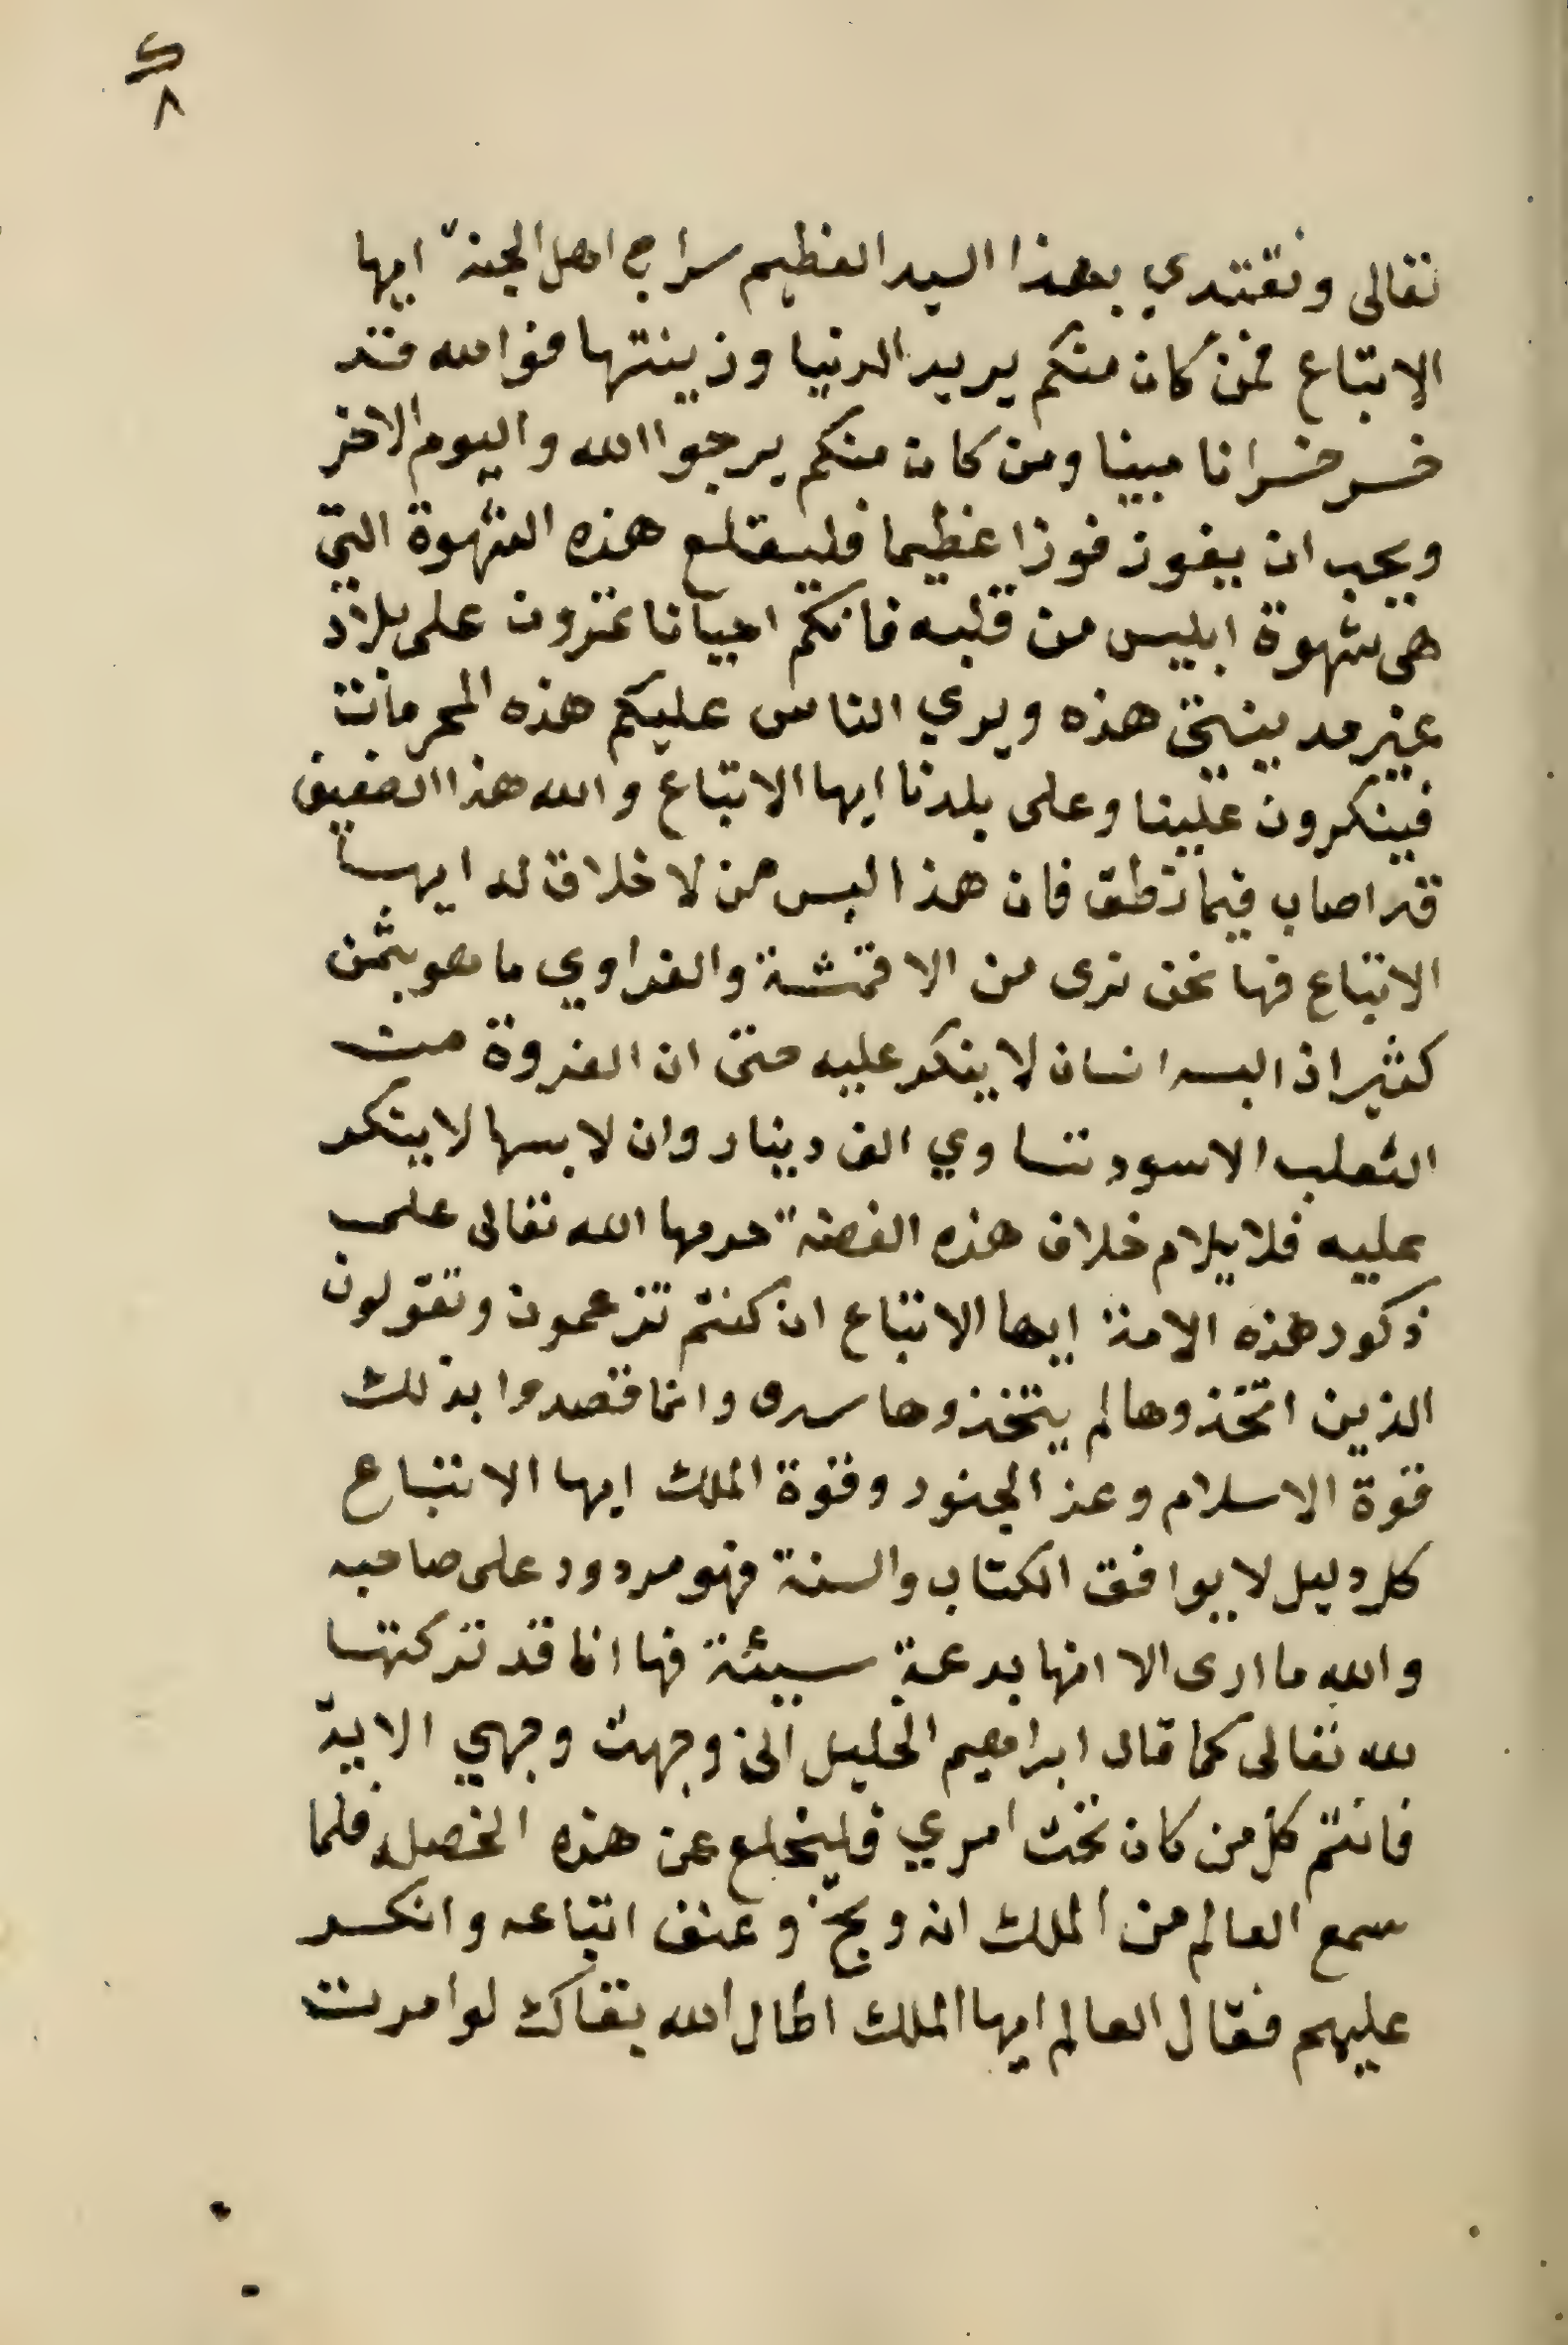 ٨
تعالى ونقتدي بهذا السيد العظيم سراج اهل الجنة ايها
الاتباع فمن كان منكم يريد الدنيا وزينتها فوالله قد
خسر خسرانا مبينا ومن كان منكم يرجوا الله واليوم الاخر
ويحب ان يفوز فوزا عظيما فليقلع هذه الشهوة التي
هي شهوة ابليس من قلبه فانكم احيانا تمرون على بلاد
غير مدينتي هذه ويري الناس عليكم هذه المحرمات
فينكرون علينا وعلى بلدنا ايها الاتباع والله هذا الضعيف
قد اصاب فيما نطق فان هذا لبس من لا خلاق له ايها
الاتباع فها نحن نرى من الاقمشة والفراوي ما هو بثمن
كثير اذا لبسه انسان لا ينكر عليه حتى ان الفروة من
الثعلب الاسود تساوي الف دينار وان لابسها لا ينكر
عليه فلا يلام خلاف هذه الفضة حرمها الله تعالى على
ذكور هذه الامة ايها الاتباع ان كنتم تزعمون وتقولون
الذين اتخذوها لم يتخذوها سدى وانما قصدوا بذلك
قوة الاسلام وعز الجنود وقوة الملك ايها الاتباع
كل دليل لا يوافق الكتاب والسنة فهو مردود على صاحبه
والله ما ارى الا انها بدعة سيئة فها انا قد تركتها
لله تعالى كما قال ابراهيم الخليل اني وجهت وجهي الاية
فانتم كل من كان تحت امري فلينخلع عن هذه الخصله فلما
سمع العالم من الملك انه وبخ وعنف اتباعه وانكر
عليهم فقال العالم ايها الملك اطال الله بقاك لو امرت